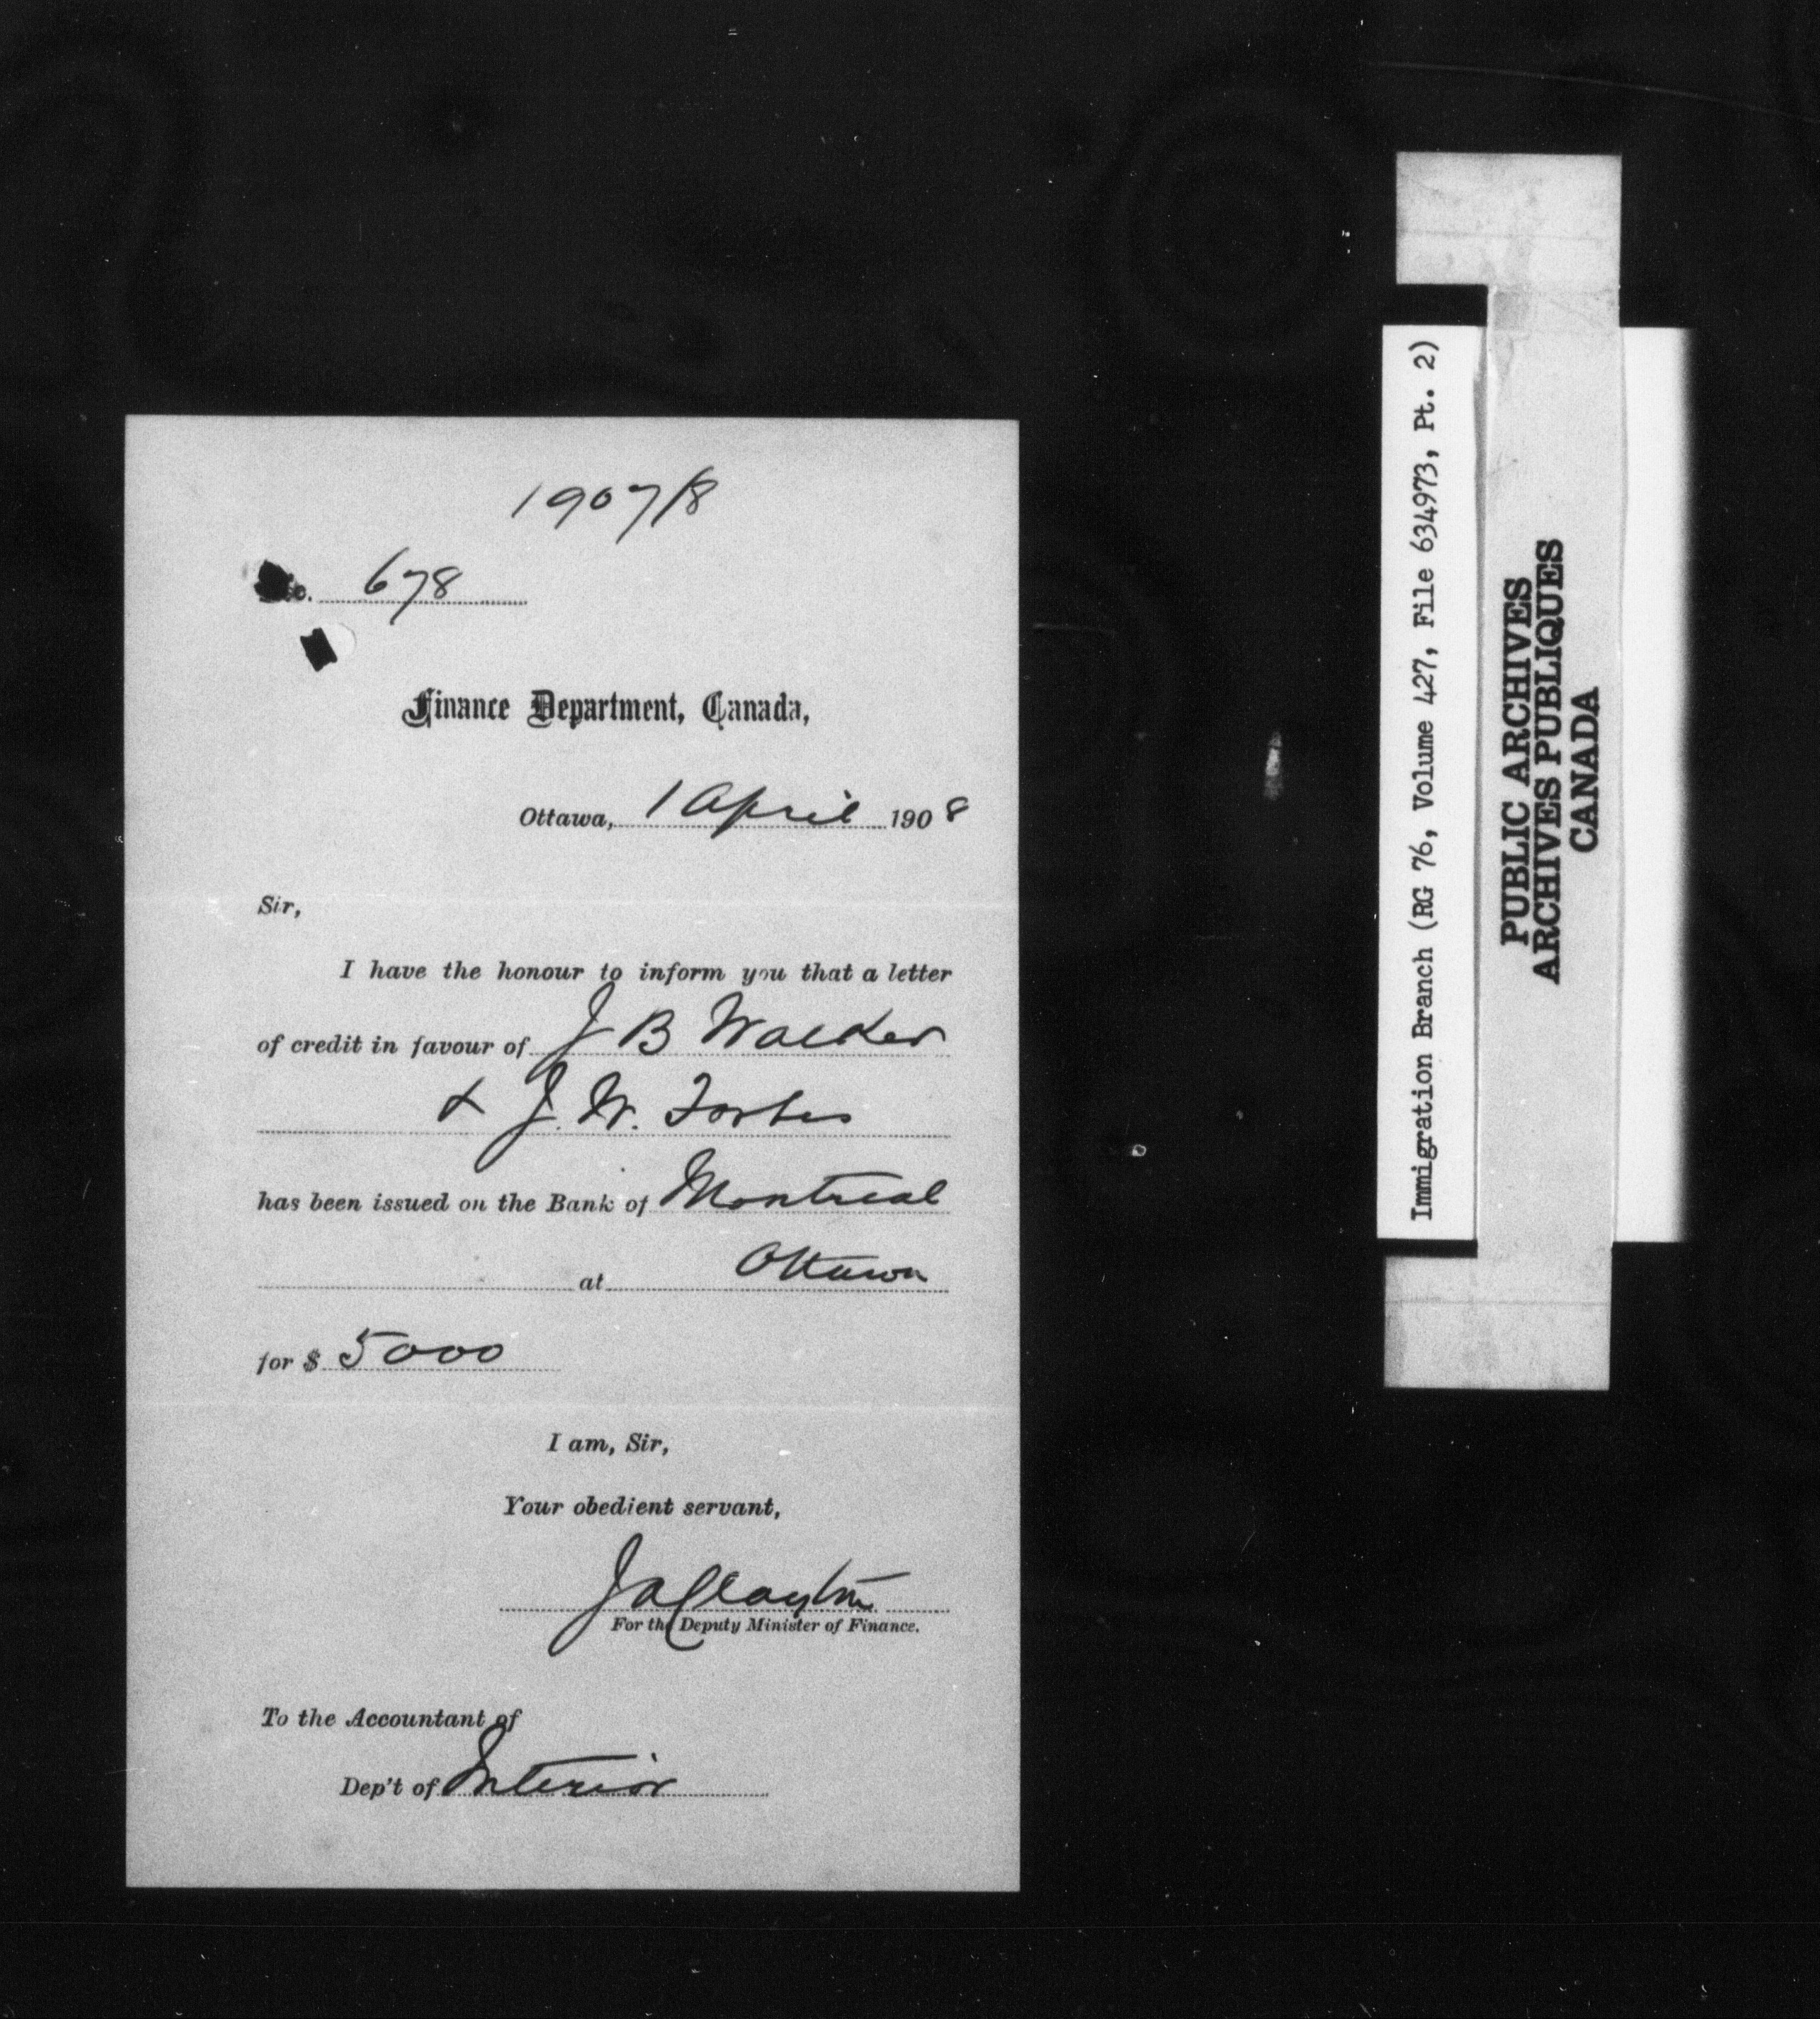 1907/8
No. 678
Finance Department, Canada,
Ottawa, 1 April 1908
Sir,
I have the honour to inform you that a letter
of credit in favour of J B Walker
& J. W. Forbes
has been issued on the Bank of Montreal
at Ottawa
for $ 5000
I am, Sir,
Your obedient servant,
JAClayton
For the Deputy Minister of Finance.
To the Accountant of
Dep't of Interior
Immigration Branch (RG 76, Volume 427, File 634973, Pt. 2)
PUBLIC ARCHIVES
ARCHIVES PUBLIQUES
CANADA